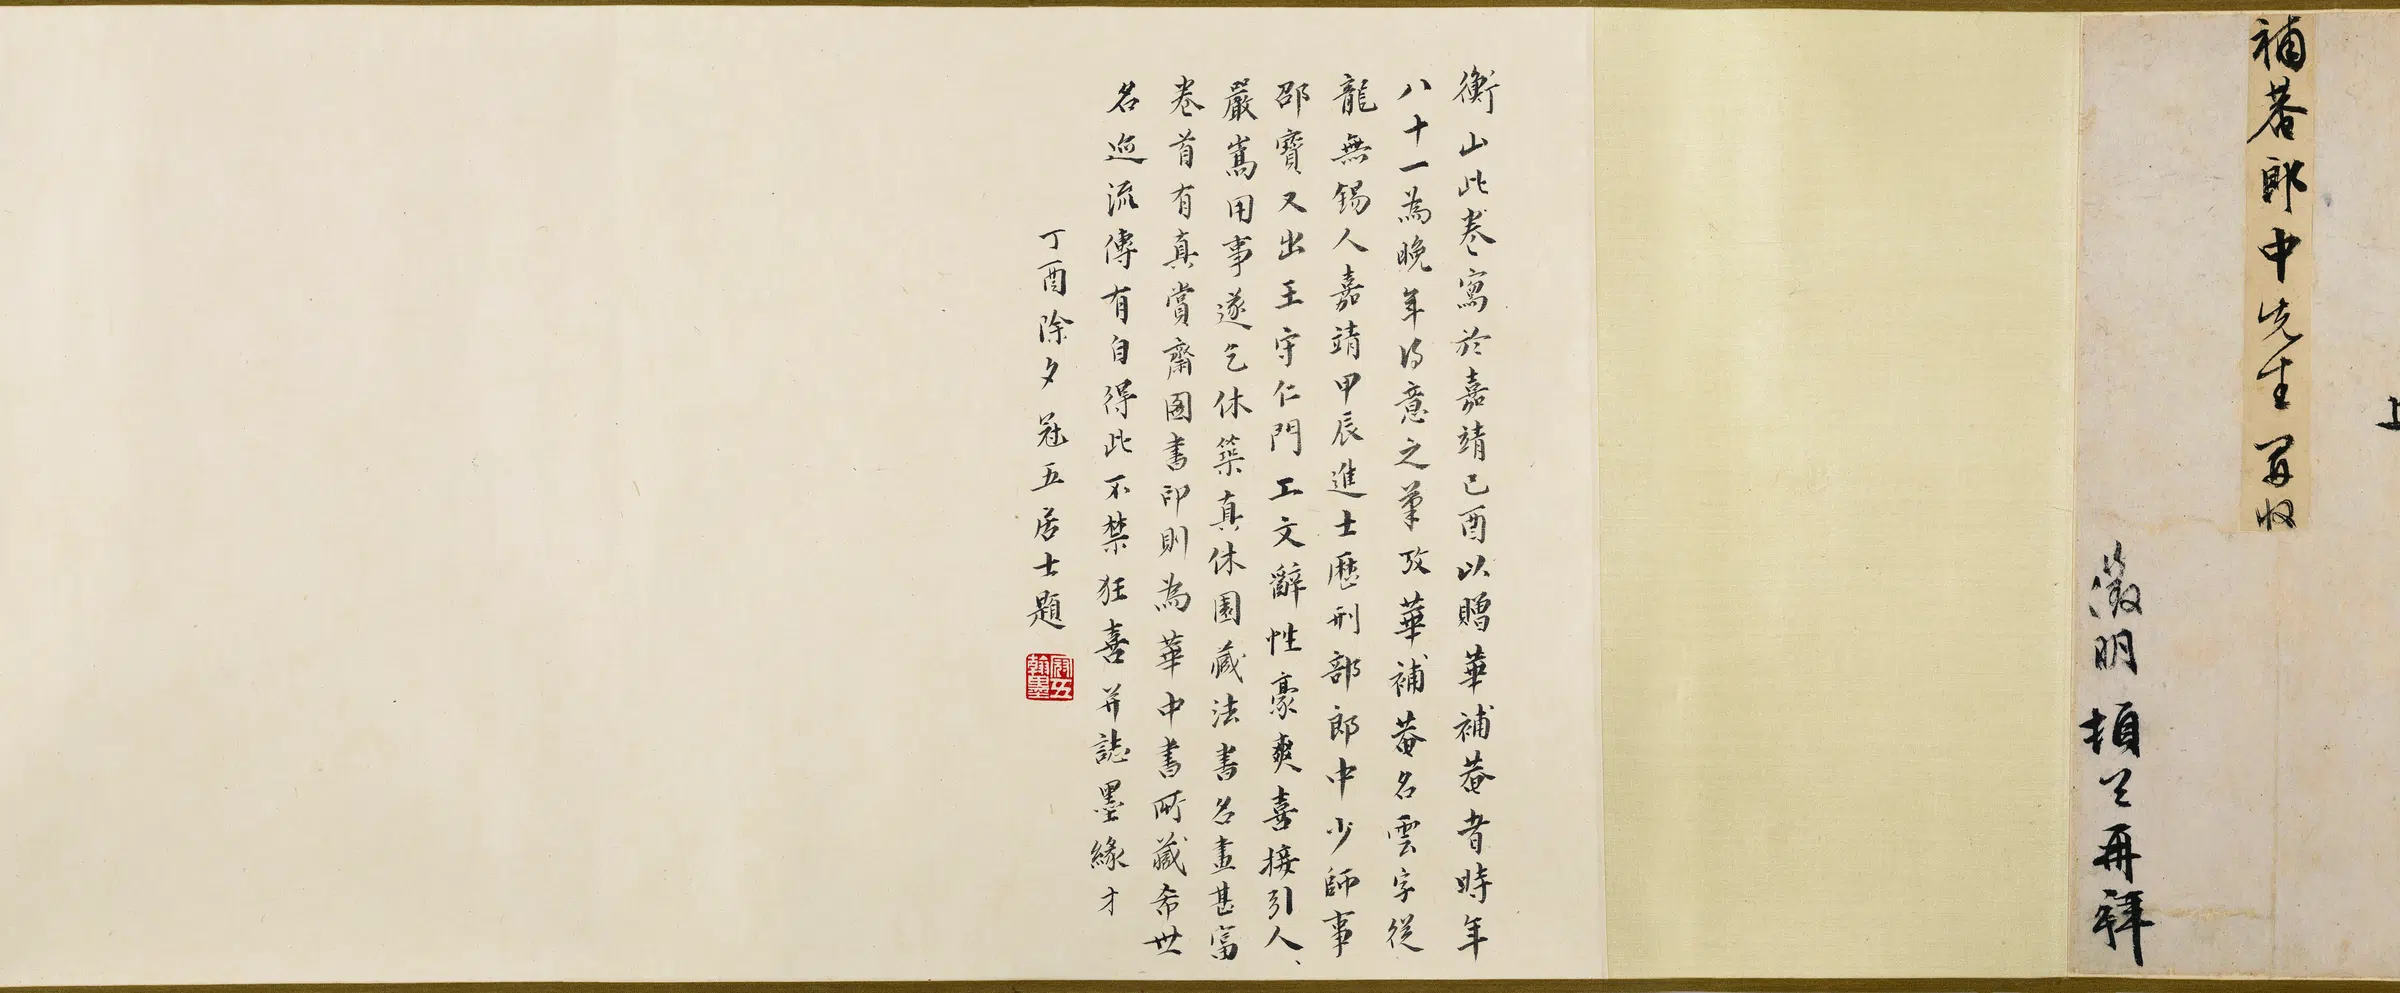 上
補菴郎中先生
徵明頓首再拜
衡山此卷寫於嘉靖己酉以贈華補菴者時年
八十一為晚年得意之筆攷華補菴名雲字從
龍無錫人嘉靖甲辰進士歷刑部郎中少師事
邵寶又出王守仁門工文辭性豪爽喜接引人
嚴嵩用事遂乞休築真休園藏法書名畫甚富
卷首有真賞齋圖書印則為華中書所藏希世
名迹流傳有自得此不禁狂喜并誌墨緣才
丁酉除夕冠五居士題
冠五翰墨